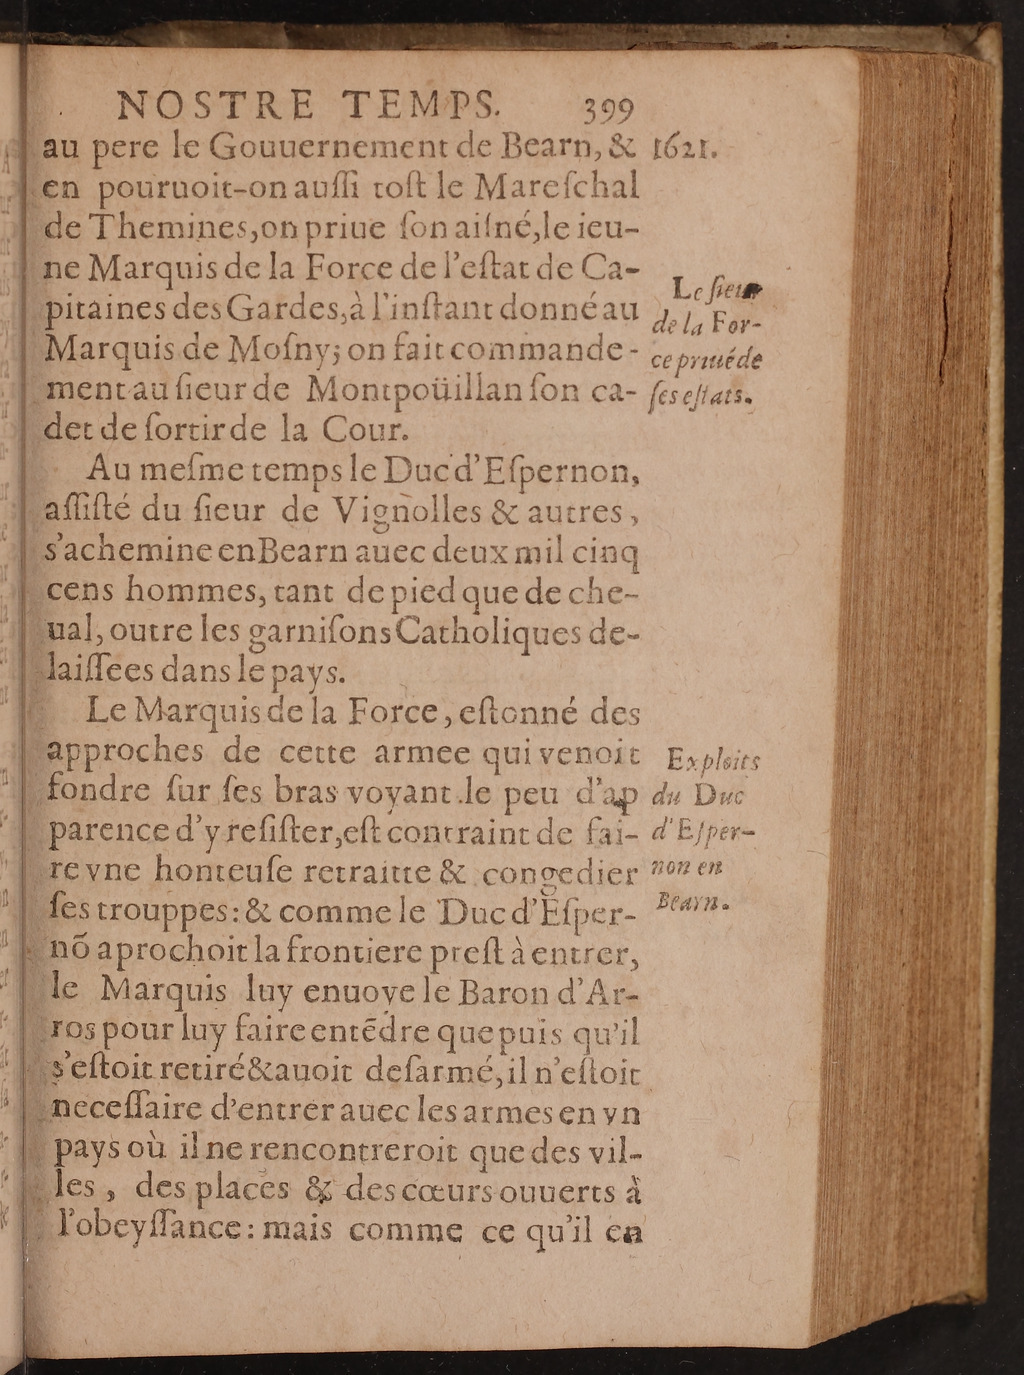 NOSTRE TEMPS. 399
au pere le Gouuernement de Bearn, & 1621.
en pouruoit-on auſſi toſt le Mareſchal
de Themines, on priue ſon aiſné, le ieu-
ne Marquis de la Force de l'eſtat de Ca-
pitaines des Gardes, à l'inſtant donné au
Marquis de Moſny; on fait commande-
ment au ſieur de Montpoüillan ſon ca-
det de ſortir de la Cour.
Le ſieur
de la For-
ce priué de
ſes eſtats.
Au meſme temps le Duc d'Eſpernon,
aſſiſté du ſieur de Vignolles & autres,
s'achemine en Bearn auec deux mil cinq
cens hommes, tant de pied que de che-
ual, outre les garniſons Catholiques de-
laiſſees dans le pays.
Le Marquis de la Force, eſtonné des
approches de cette armee qui venoit
fondre ſur ſes bras voyant le peu d'ap
parence d'y reſiſter, eſt contraint de fai-
re vne honteuſe retraitte & congedier
ſes trouppes: & comme le Duc d'Eſper-
nõ aprochoit la frontiere preſt à entrer,
le Marquis luy enuoye le Baron d'Ar-
ros pour luy faire entẽdre que puis qu'il
s'eſtoit retiré & auoit deſarmé, il n'eſtoit
neceſſaire d'entrer auec les armes en vn
pays où il ne rencontreroit que des vil-
les, des places & des cœurs ouuerts à
l'obeyſſance: mais comme ce qu'il en
Exploits
du Duc
d'Eſper-
non en
Bearn.